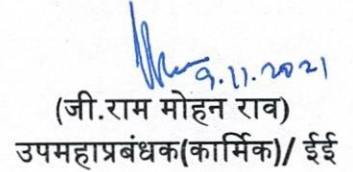 9.11.2021
(जी.राम मोहन राव)
उपमहाप्रबंधक(कार्मिक)/ ईई